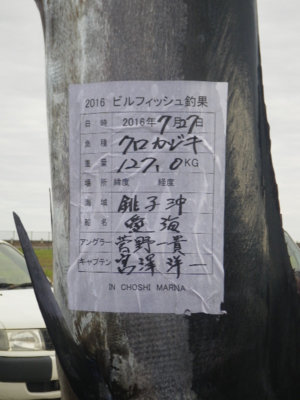 2016 ビルフィッシュ釣果
日 時 2016年7月27日
魚 種 クロカジキ
重 量 127.0KG
場 所 緯度 経度
海 域 銚子沖
船 名 海
アングラー 菅野一貴
キャプテン 宮澤洋一
IN CHOSHI MARINA